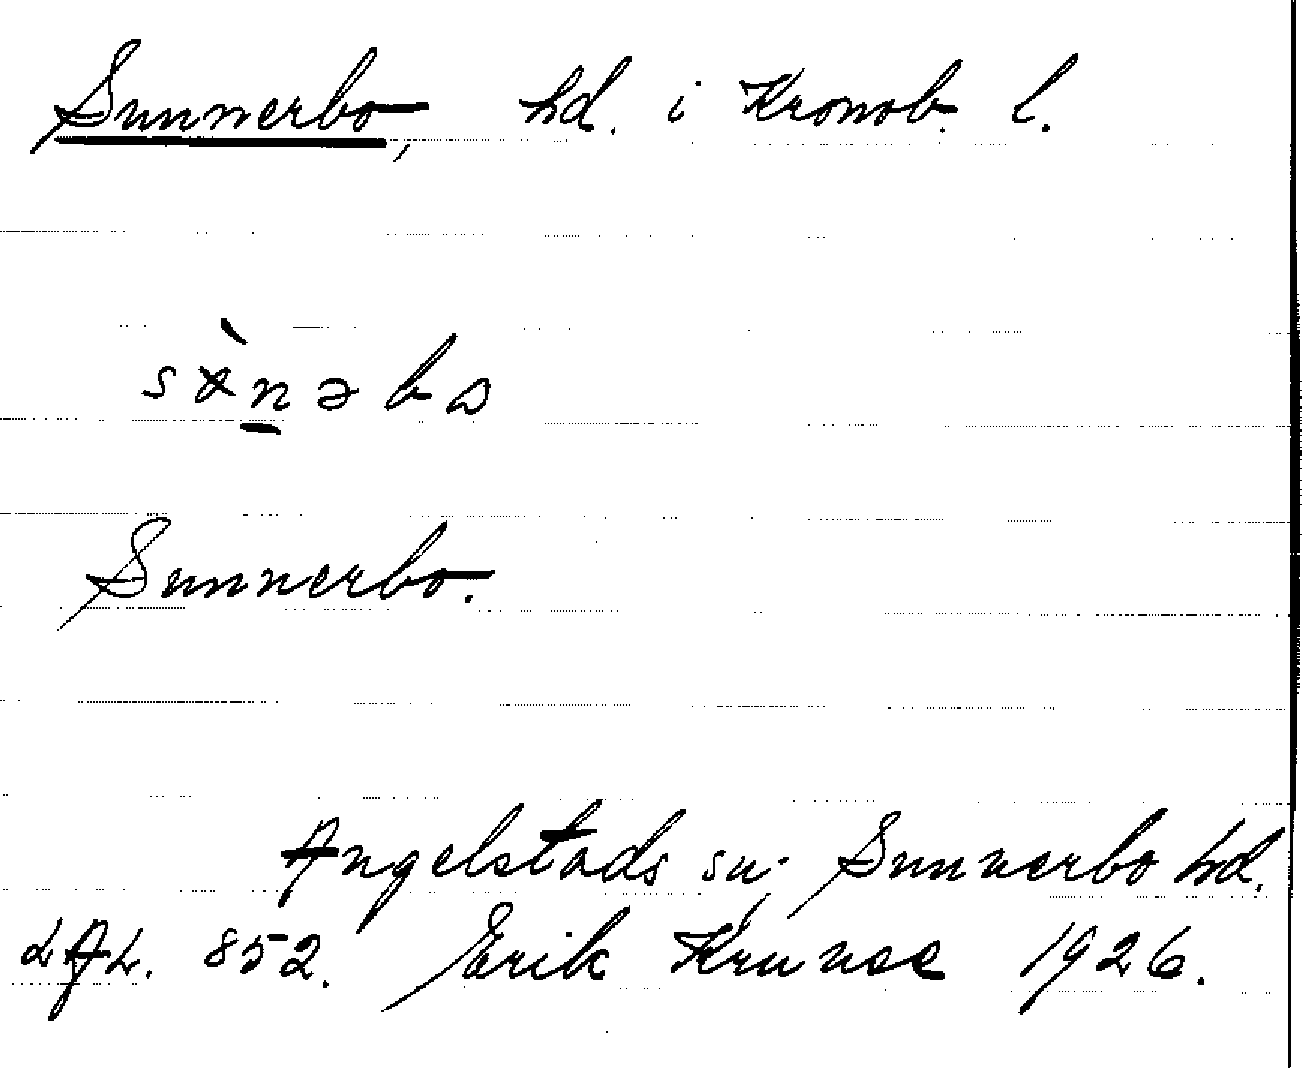 Sunnerbo, hd. i Kronob. l.
Sunnerbo.
Angelstads sn; Sunnerbo hd.
LAL. 852. Erik Kruuse 1926.